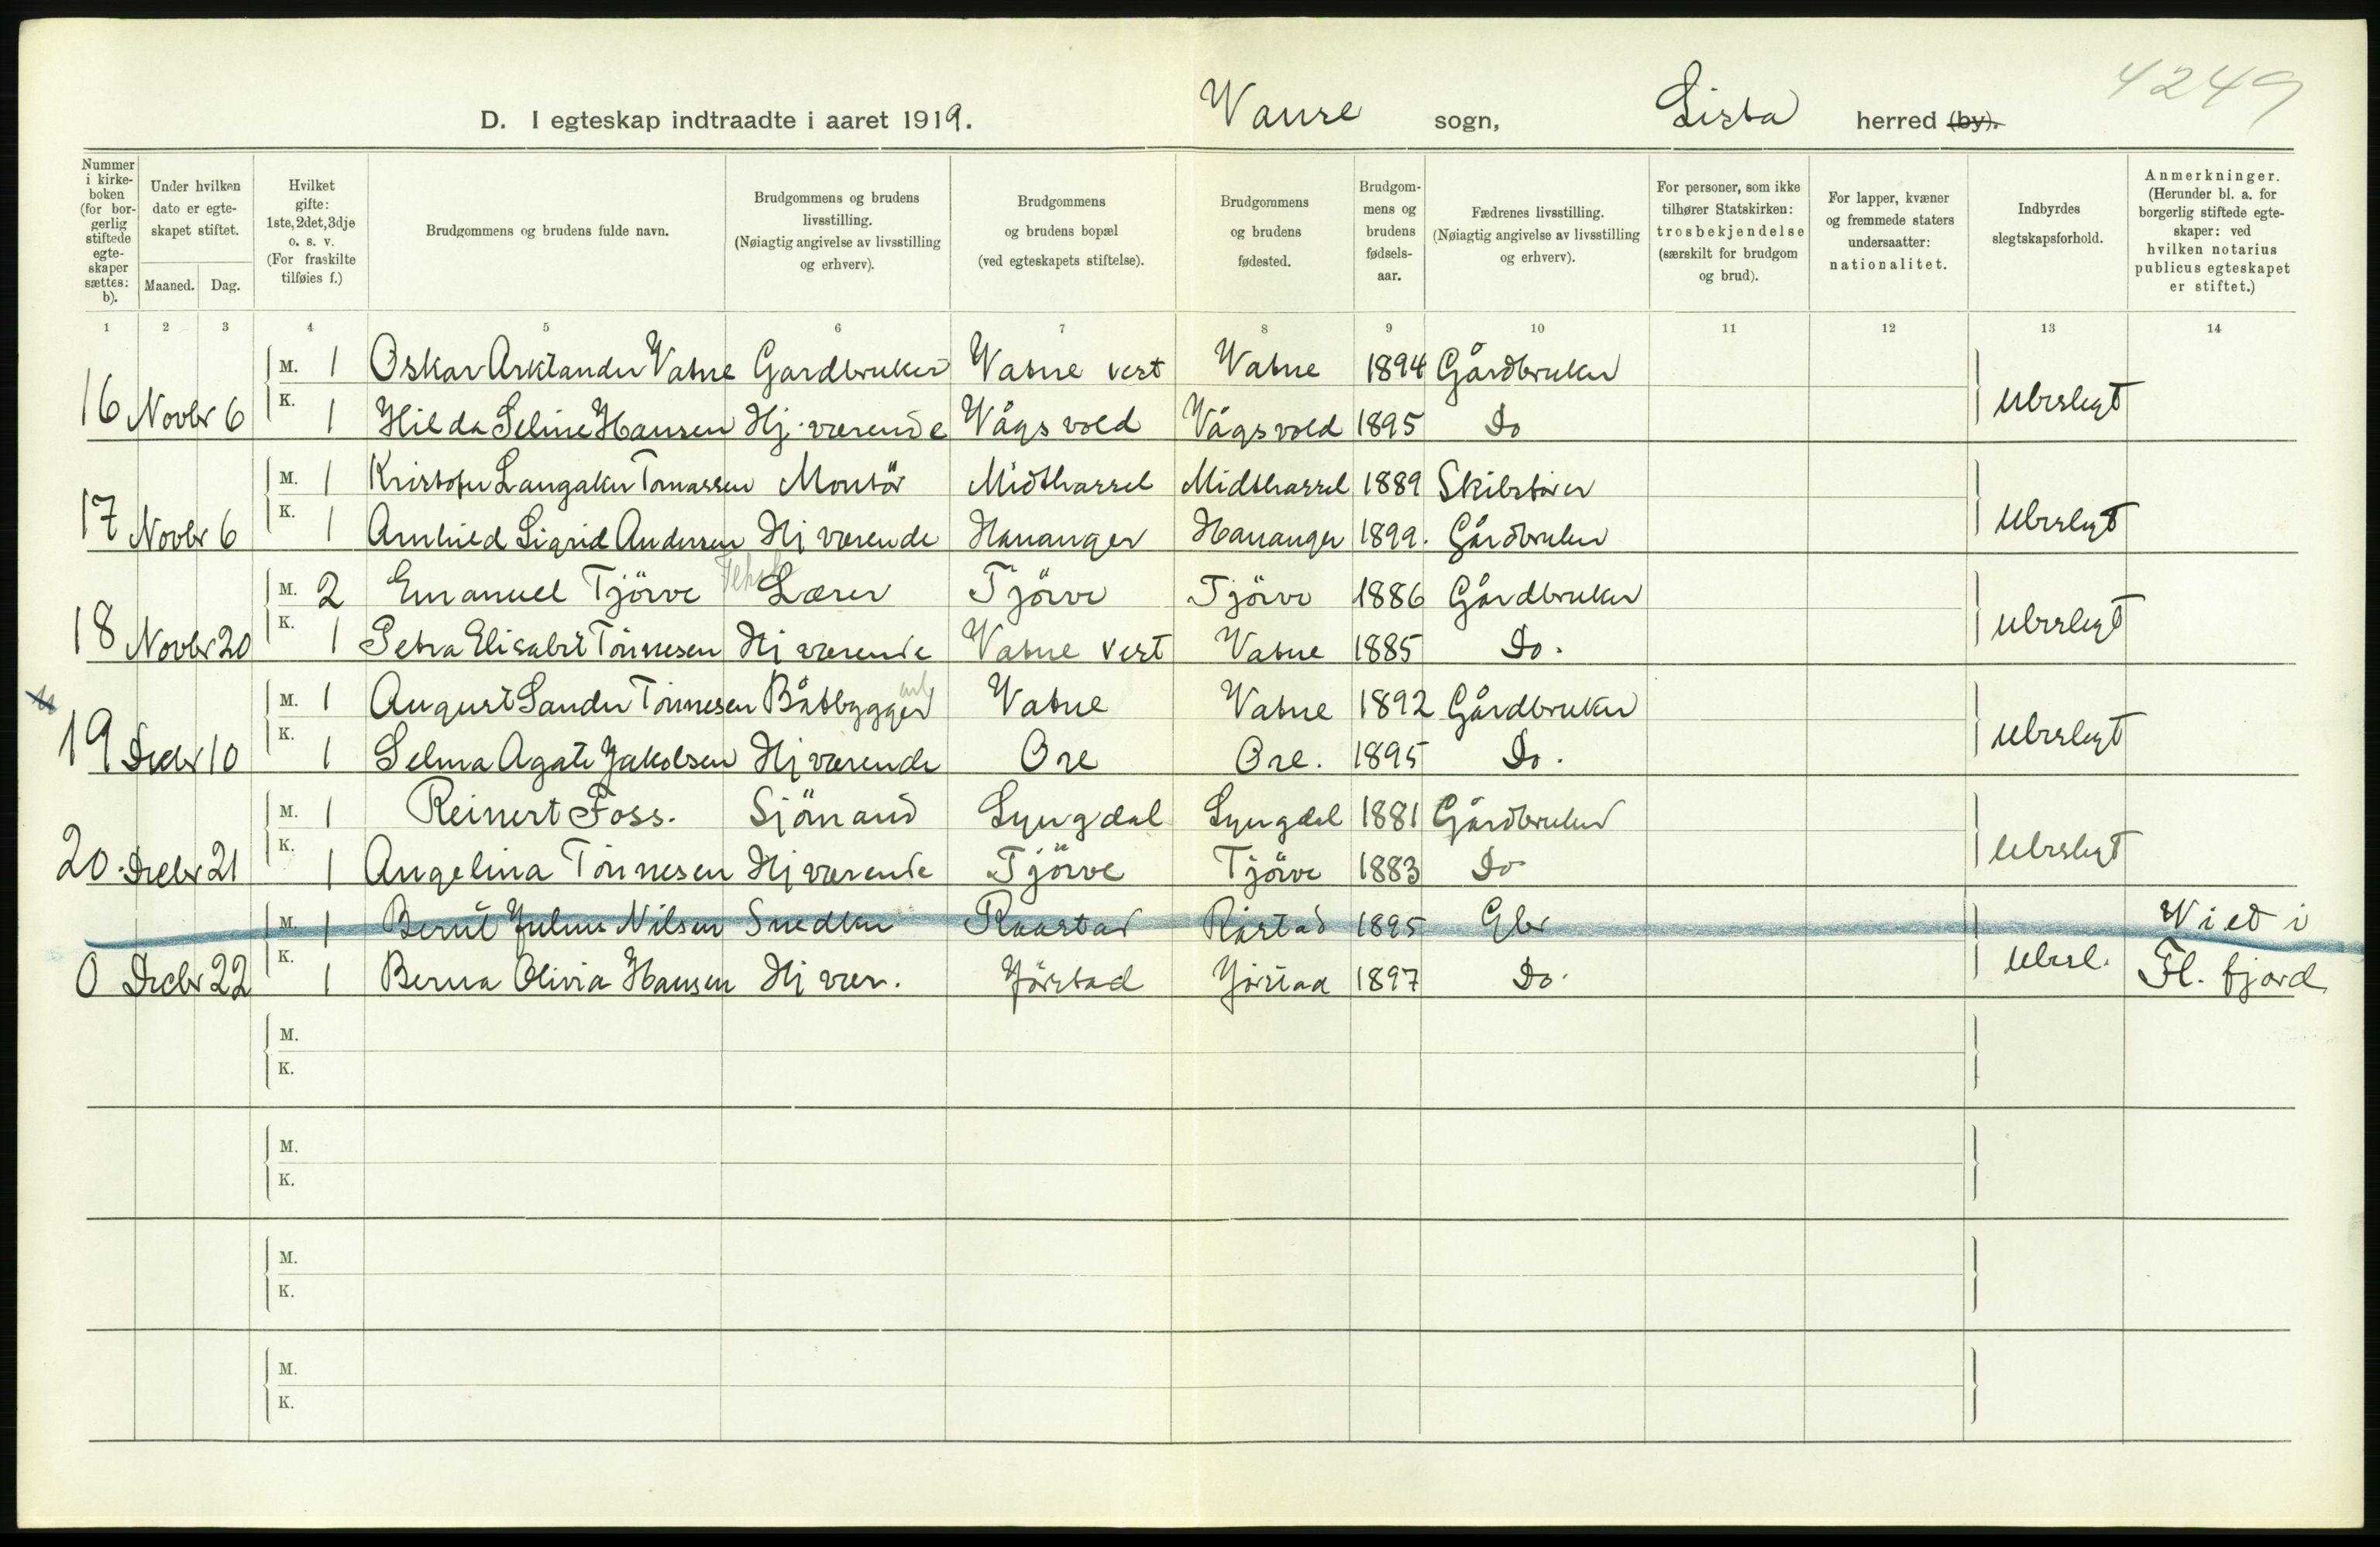 4249
D. I egteskap indtraadte i aaret 1919. Vanse sogn, Lista herred (by).
Nummer i kirkeboken (for borgerlig stiftede egteskaper sættes: b).
Under hvilken dato er egteskapet stiftet.
Maaned. Dag.
Hvilket gifte: 1ste, 2det, 3dje o. s. v. (For fraskilte tilføies f.)
Brudgommens og brudens fulde navn.
Brudgommens og brudens livsstilling. (Nøiagtig angivelse av livsstilling og erhverv).
Brudgommens og brudens bopæl (ved egteskapets stiftelse).
Brudgommens og brudens fødested.
Brudgommens og brudens fødselsaar.
Fædrenes livsstilling. (Nøiagtig angivelse av livsstilling og erhverv).
For personer, som ikke tilhører Statskirken: trosbekjendelse (særskilt for brudgom og brud).
For lapper, kvæner og fremmede staters undersaatter: nationalitet.
Indbyrdes slegtskapsforhold.
Anmerkninger. (Herunder bl. a. for borgerlig stiftede egteskaper: ved hvilken notarius publicus egteskapet er stiftet.)
1 2 3 4 5 6 7 8 9 10 11 12 13 14
M. 1 Oskar Arktander Vatne Gardbruker Vatne vest Vatne 1894 Gårdbruker
16 Novbr 6 K. 1 Hilda Seline Hansen Hj. værende Vågsvold Vågsvold 1895 Do Ubeslegt
M. 1 Kristofer Langaker Tomassen Montör Midthassel Midthassel 1889 Skibsfører
17 Novbr 6 K. 1 Arnhild Sigrid Andersen Hj værende Hananger Hananger 1899. Gårdbruker Ubeslegt
M. 2 Emanuel Tjörve Lærer Tjörve Tjörve 1886 Gårdbruker
18 Novbr 20 K. 1 Petra Elisabet Tönnesen Hj værende Vatne vest Vatne 1885 Do. Ubeslegt
M. 1 August Sander Tönnesen Båtbygger Vatne Vatne 1892 Gårdbruker
19 Decbr 10 K. 1 Selma Agate Jakobsen Hj værende Ore Ore. 1895 Do. Ubeslegt
M. 1 Reinert Foss. Sjömand Lyngdal Lyngdal 1881 Gårdbruker
20. Decbr 21 K. 1 Angelina Tönnesen Hj værende Tjörve Tjörve 1883 Do Ubeslegt
M. 1 Bernt Julius Nilsen Snedker Raastad Råstad 1895 Gbr Viet i
0 Decbr 22 K. 1 Berna Olivia Hansen Hj vær. Jörstad Jörstad 1897 Do. Ubesl. Fl. fjord
M.
K.
M.
K.
M.
K.
M.
K.